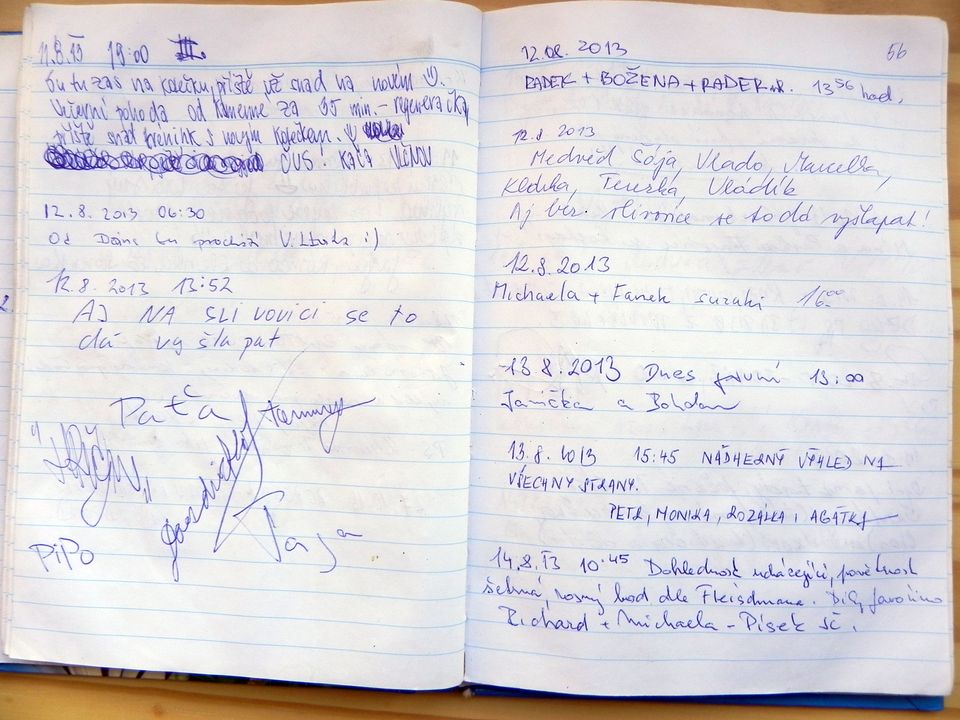 11.8.13 19:00 III.
Su tu zas na kolečku, příště už snad na novém
Večerní pohoda od Kamenne za 35 min. – regeneračka,
příště snad trénink s novým kolečkem.
ČUS! KAČA
12.8.2013 06:30
Od :)
12.8.2013 13:52
AJ NA SLIVOVICI se to
dá vyšlapat
Paťa
PiPo
Tája
12.08.2013 56
RADEK + BOŽENA + RADEK ml. 13⁵⁶ hod.
12.8.2013
Medvěd Šója, Vlado, Marcelka,
Terezka, Vladík
Aj bez slivovice se to dá vyšlapat!
12.8.2013
Michaela + Fanek suzuki 16⁰⁰
-13.8.2013 Dnes první 13:00
Janička a Bohdan
13.8.2013 15:45 NÁDHERNÝ VÝHLED NA
VŠECHNY STRANY.
PETR, MONIKA, ROZÁLKA i AGÁTKA
14.8.13 10.⁴⁵ Dohlednost
rosný bod dle Fleischmana. Díky, Javořino
Richard + Michaela – Písek SČ.